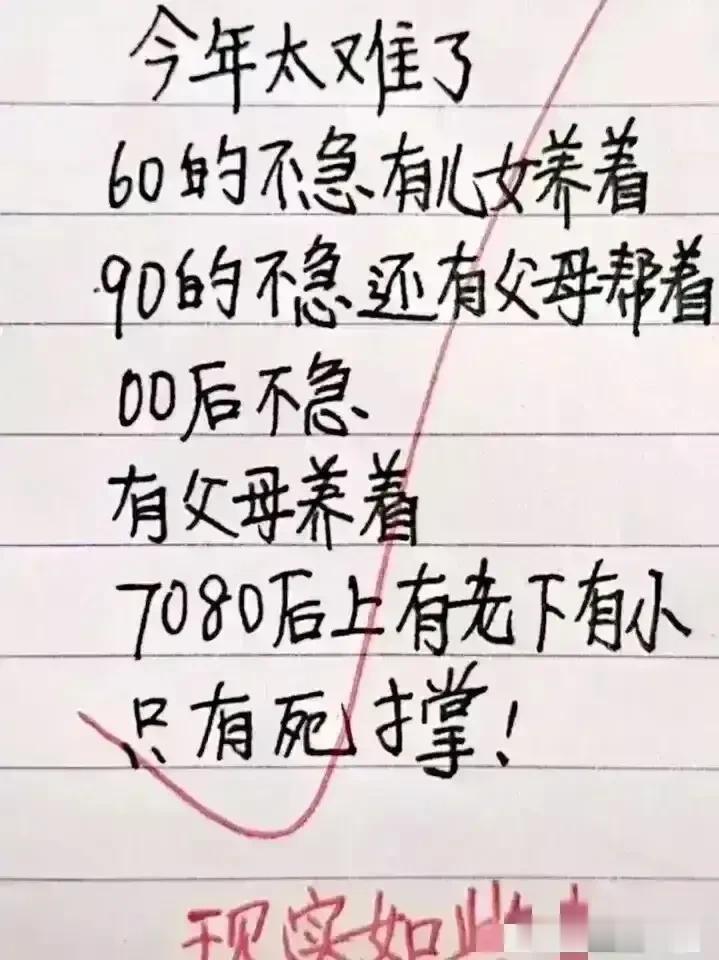 今年太难了
60的不急有儿女养着
90的不急还有父母帮着
00后不急
有父母养着
7080后上有老下有小
只有死撑!
现实如此